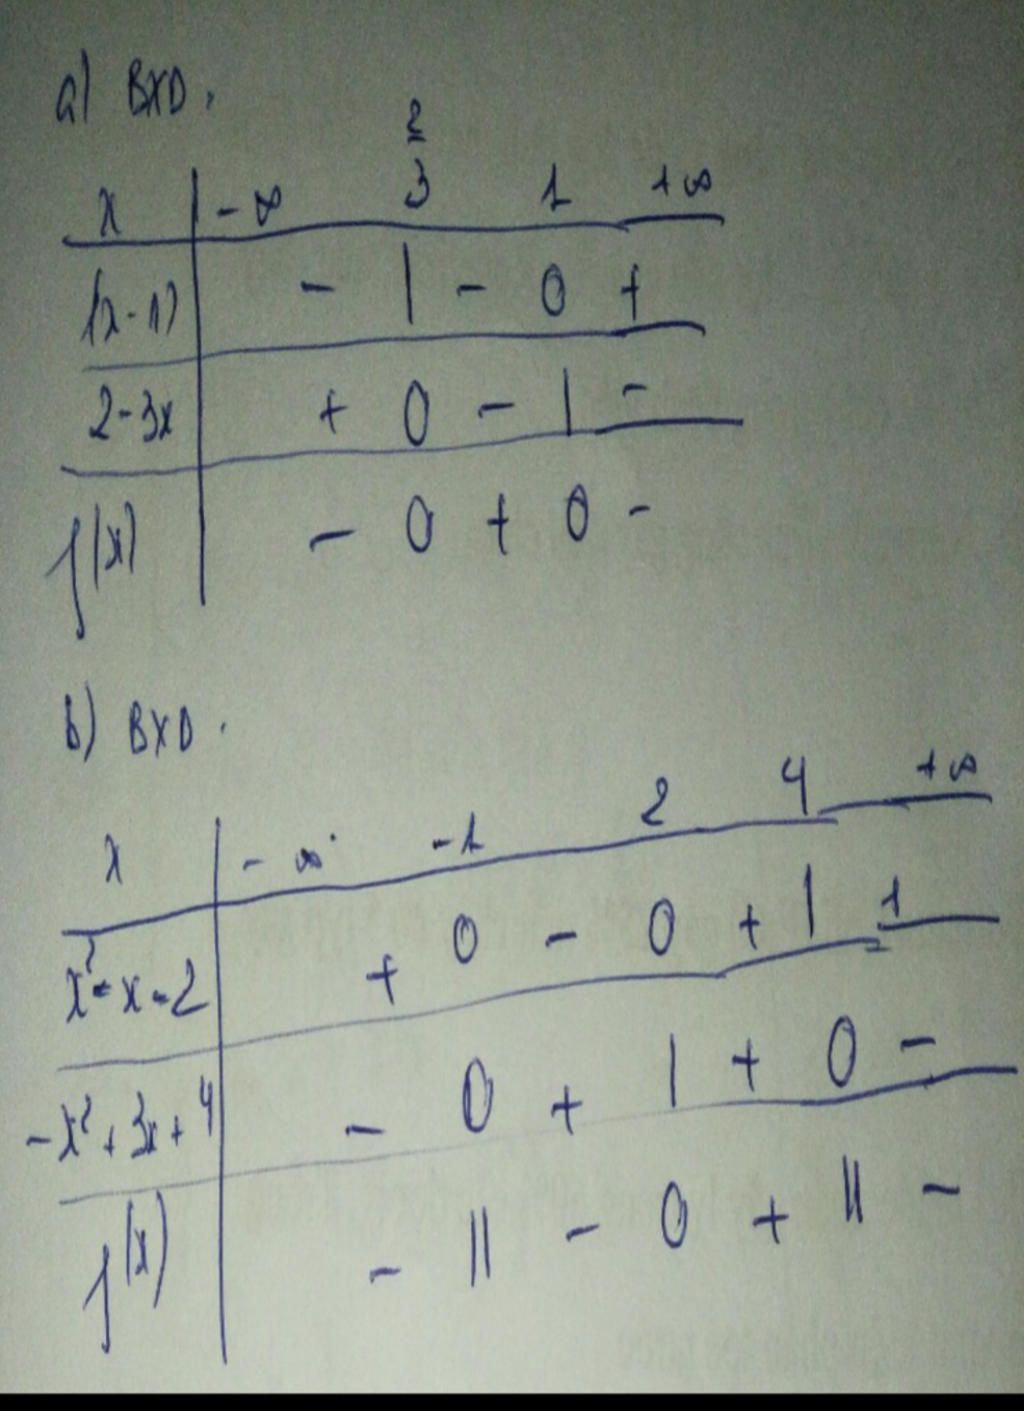 a) BXD.
2
x | -∞ 3 1 +∞
(x-1) | - | - 0 +
2-3x | + 0 - | -
f(x) | - 0 + 0 -
b) BXD.
x | -∞ -1 2 4 +∞
x²-x-2 | + 0 - 0 + | +
-x²+3x+4 | - 0 + | + 0 -
f(x) | - || - 0 + || -